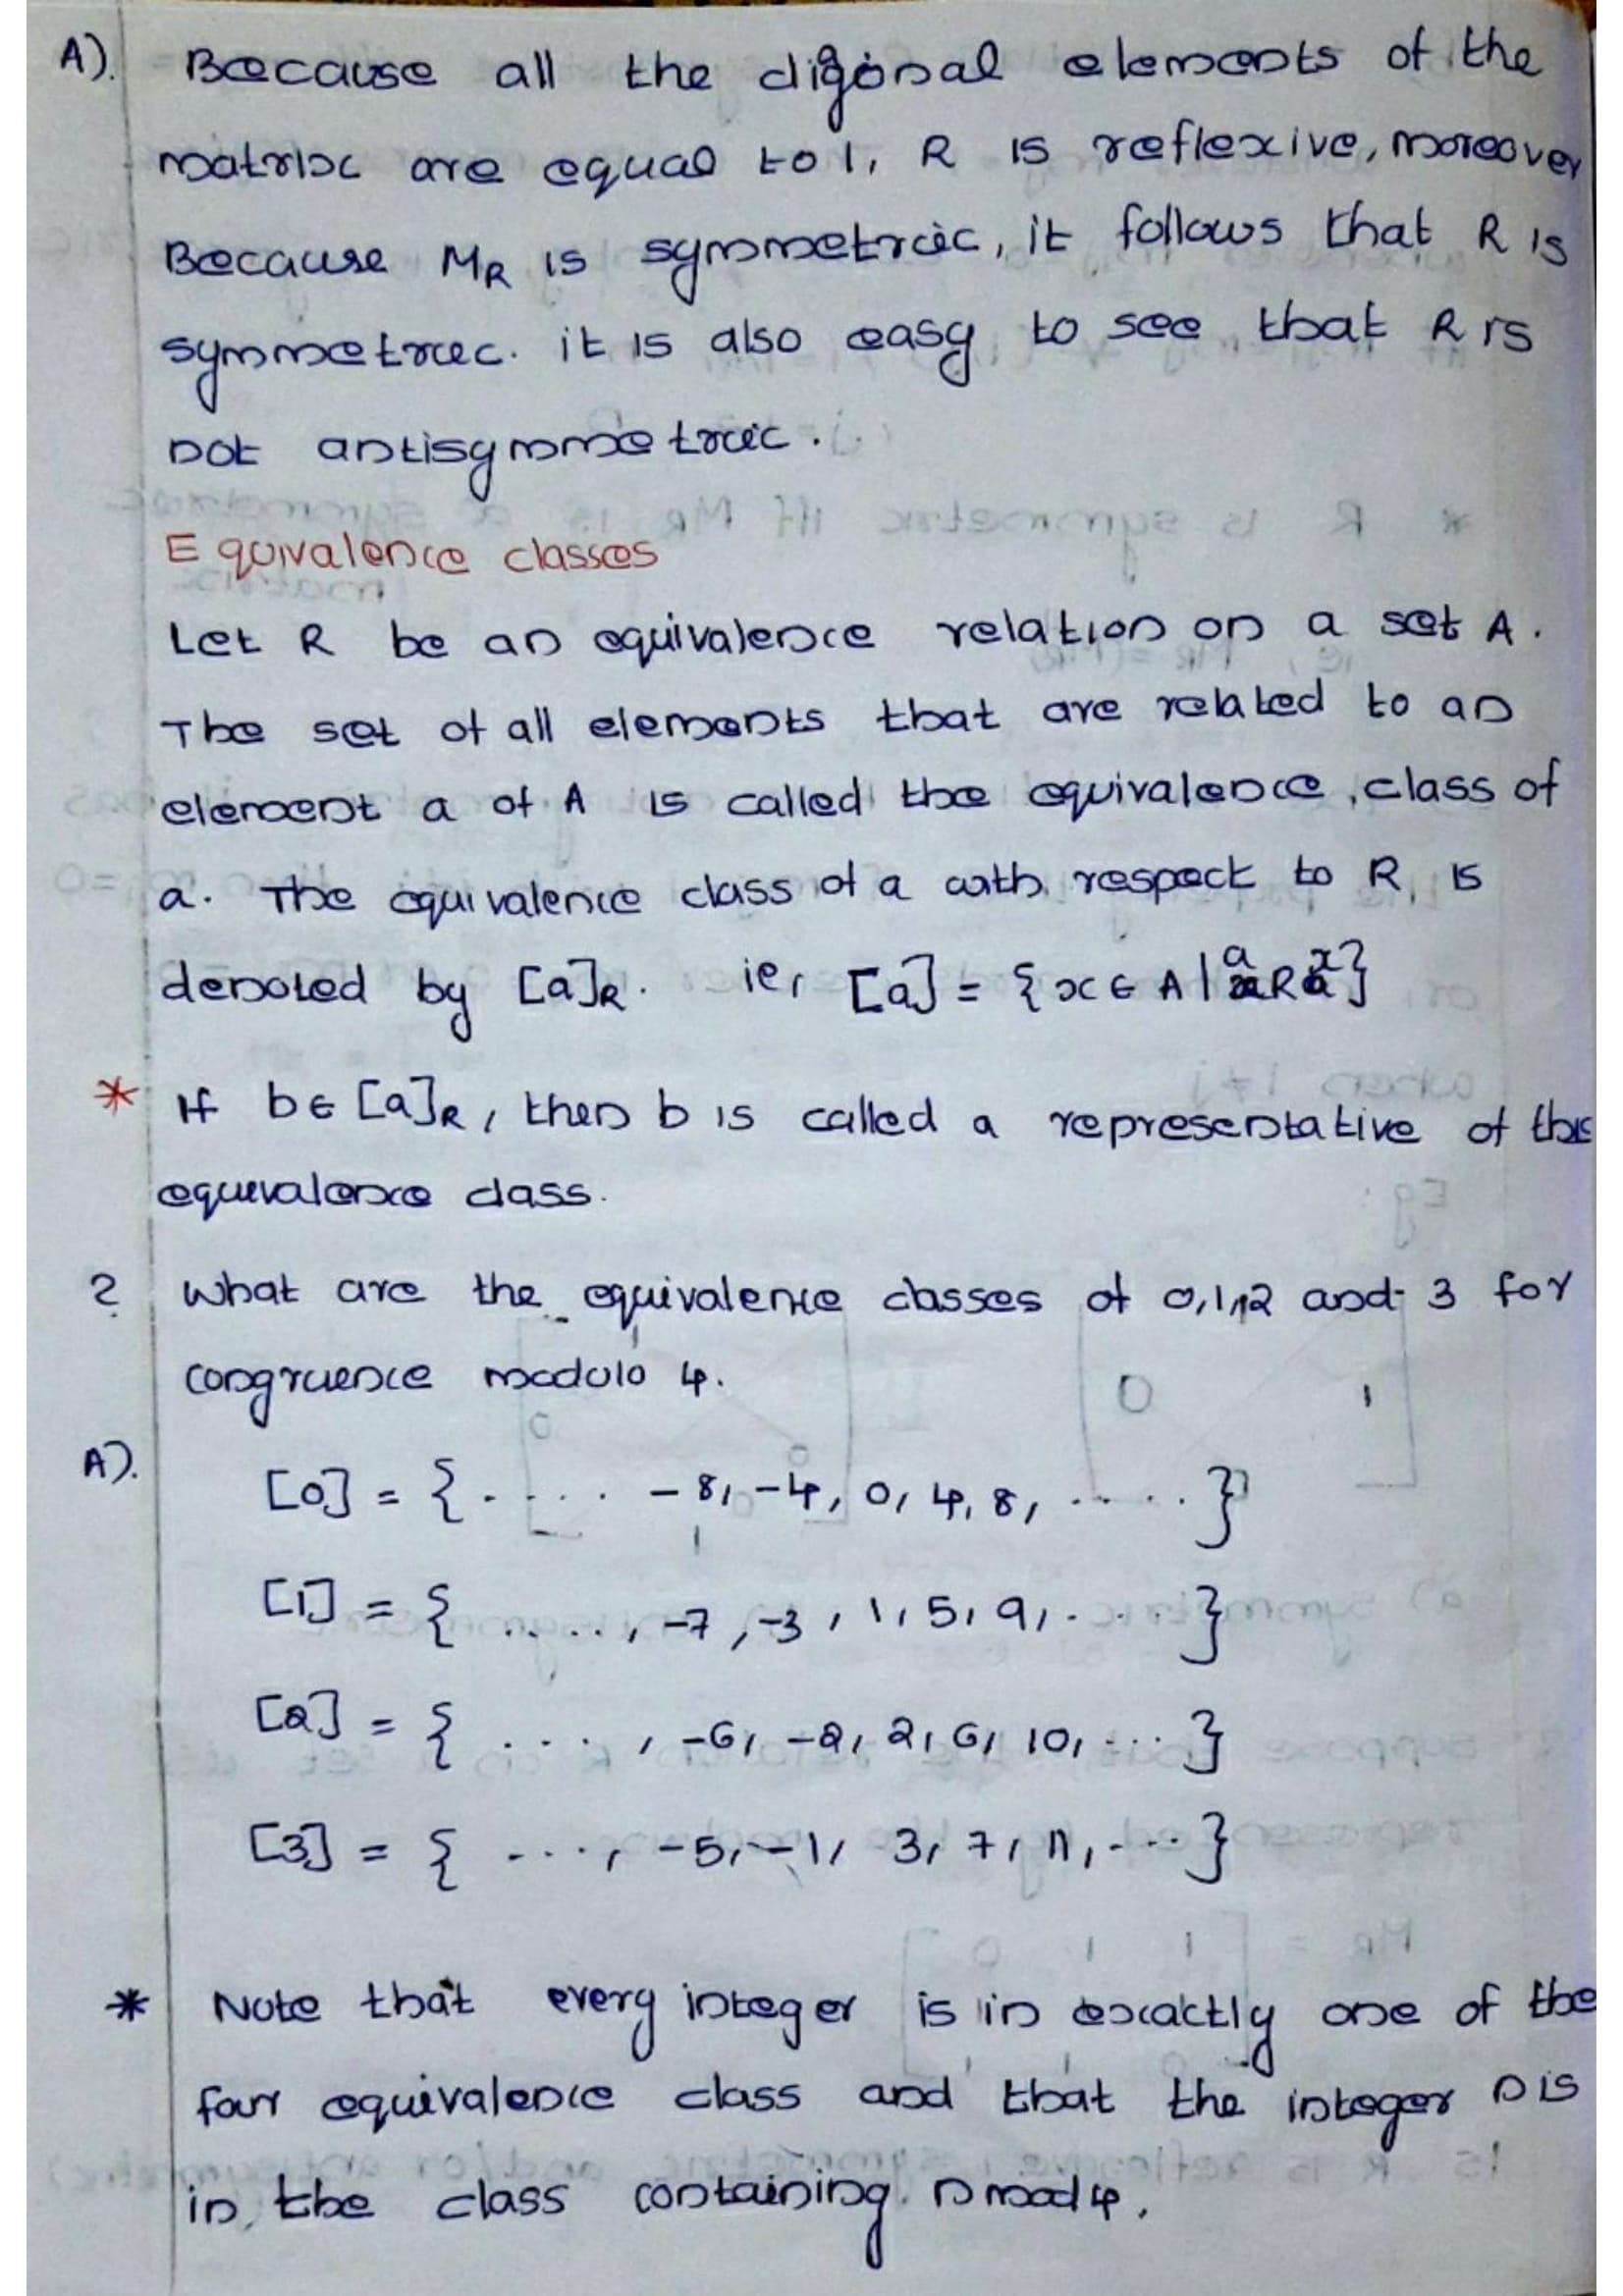 A). Because all the digonal elements of the
matrix are equal to 1, R is reflexive, moreover
Because M_R is symmetric, it follows that R is
symmetric. it is also easy to see that R is
not antisymmetric.
Equivalence classes
Let R be an equivalence relation on a set A.
The set of all elements that are related to an
element a of A is called the equivalence class of
a. The equivalence class of a with respect to R is
denoted by [a]_R. ie, [a] = {x ∈ A | a R x}
* If b ∈ [a]_R, then b is called a representative of this
equivalence class.
? What are the equivalence classes of 0,1,2 and 3 for
congruence modulo 4.
A). [0] = {..... -8, -4, 0, 4, 8, .....}
[1] = {....., -7, -3, 1, 5, 9, ....}
[2] = {...., -6, -2, 2, 6, 10, ...}
[3] = {...., -5, -1, 3, 7, 11, ...}
* Note that every integer is in exactly one of the
four equivalence class and that the integer n is
in the class containing n mod 4.